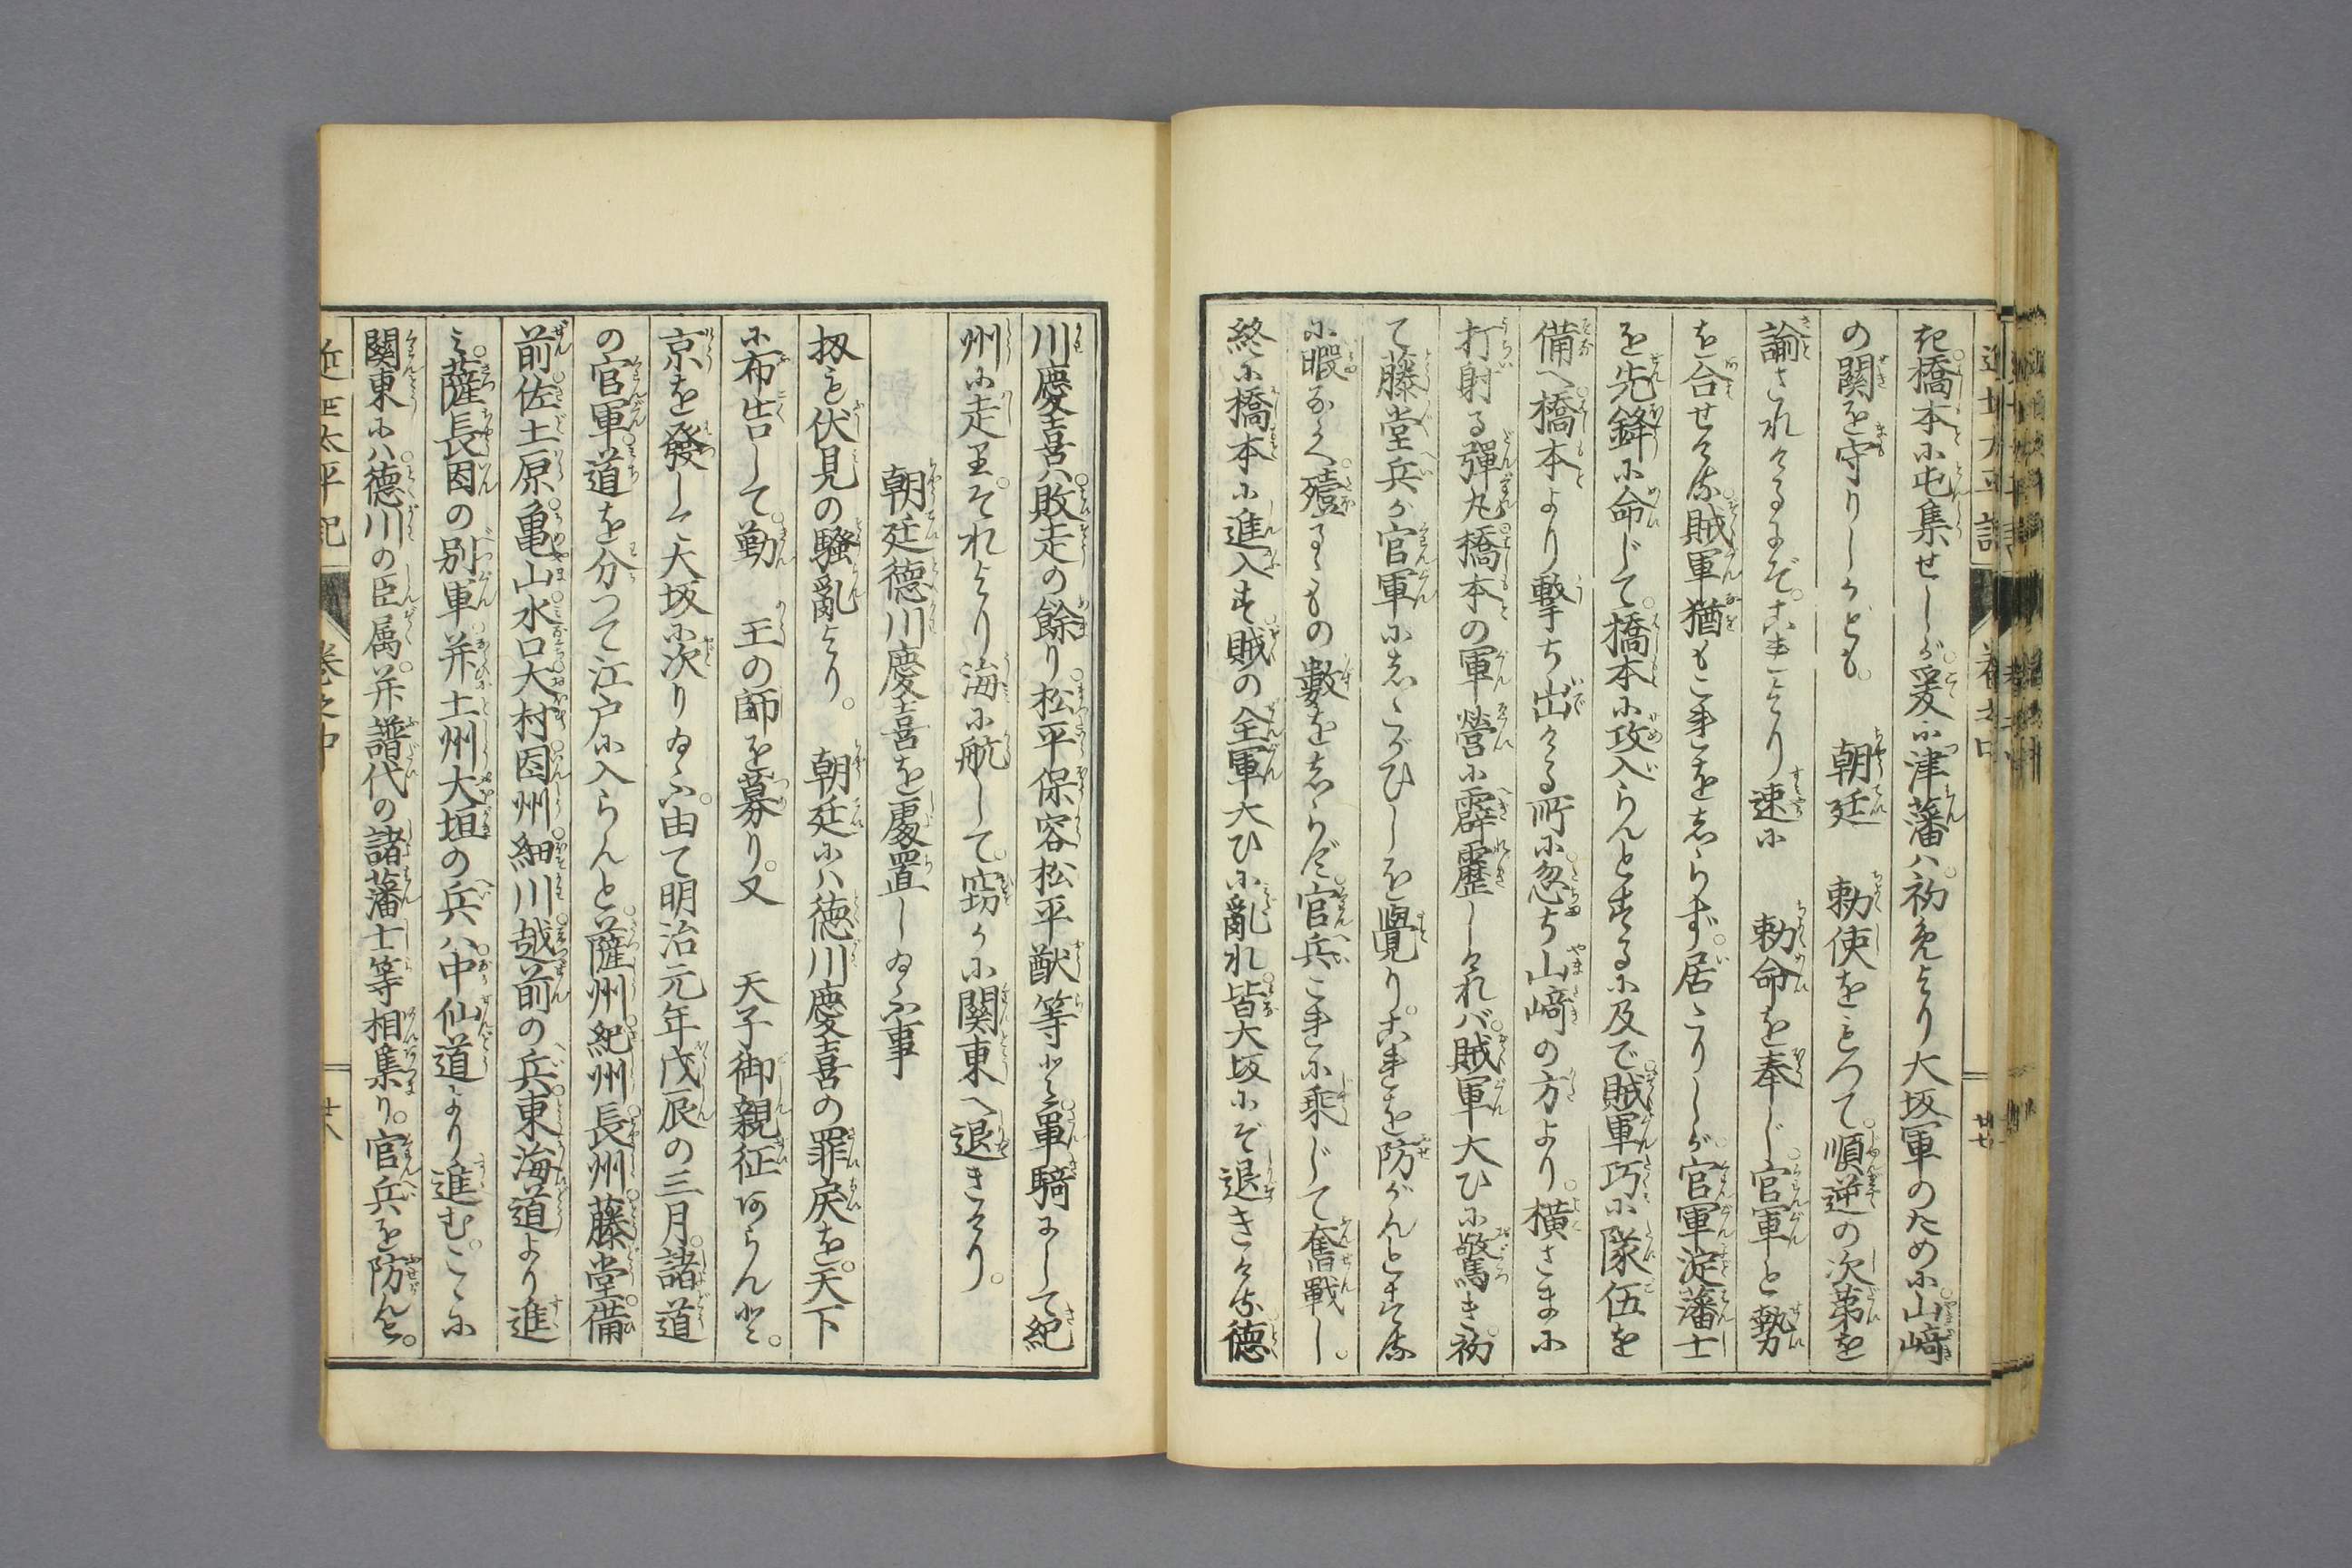 き橋本に屯集せしが爰に津藩ハ初めより大坂軍のために山﨑
の関を守りしかども　朝廷　勅使をもつて順逆の次第を
諭されけるにぞこれより速に　勅命を奉じ官軍と勢
を合せける賊軍猶もこれをしらず居たりしが官軍淀藩士
を先鋒に命じて橋本に攻入らんとするに及で賊軍巧に隊伍を
備へ橋本より撃ち出ける所に忽ち山﨑の方より横さまに
打射る彈丸橋本の軍營に霹靂しければ賊軍大ひに驚き初
て藤堂兵が官軍にしたがひしを覺りこれを防がんとする
に暇なく殪るゝもの數をしらず官兵これに乗じて奮戰し
終に橋本に進入す賊の全軍大ひに亂れ皆大坂にぞ退きける德
川慶喜ハ敗走の餘り松平保容松平猷等と単騎にして紀
州に走りそれより海に航して窃かに関東へ退きけり
朝廷德川慶喜を處置し給ふ事
扨も伏見の騒亂より　朝廷にハ徳川慶喜の罪戻を天下
に布告して勤　王の師を募り又　天子御親征あらんと
京を發して大坂に次り給ふ由て明治元年戊辰の三月諸道
の官軍道を分つて江戸に入らんと薩州紀州長州藤堂備
前佐土原亀山水口大村因州細川越前の兵東海道より進
み薩長因の别軍并土州大垣の兵ハ中仙道より進むこゝに
関東にハ德川の臣属并譜代の諸藩士等相集り官兵を防んと
近世太平記　巻之中　廿八